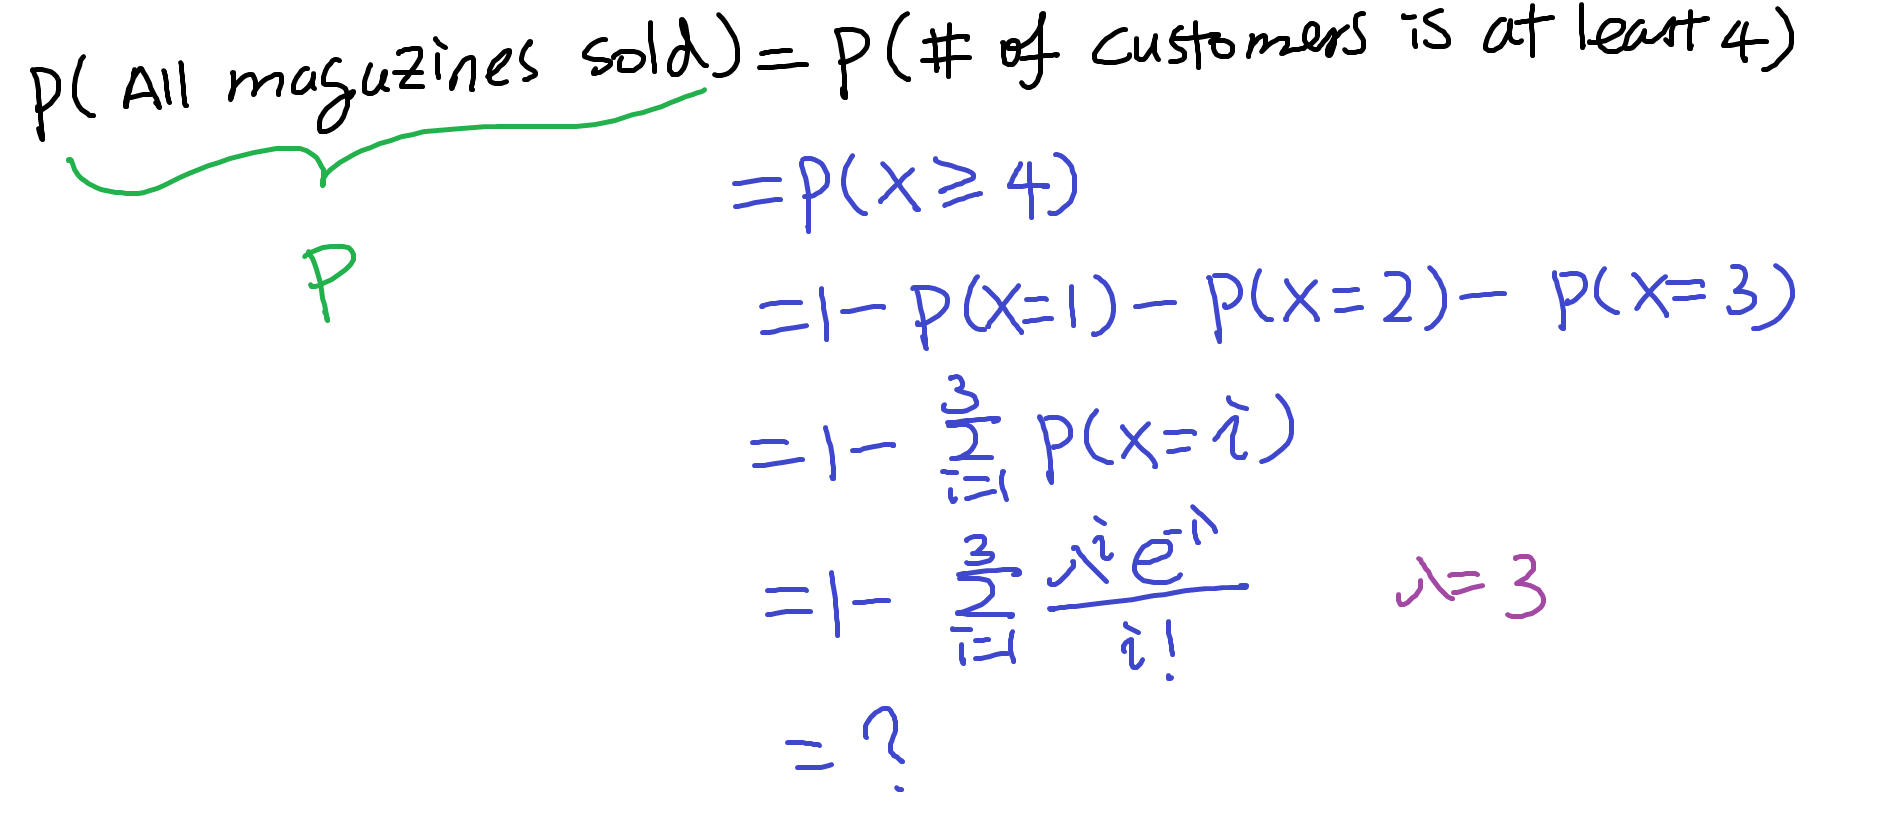 P(All magazines sold) = P(# of customers is at least 4)
P
= P(X ≥ 4)
= 1 - P(X=1) - P(X=2) - P(X=3)
= 1 - ∑_{i=1}^{3} P(X=i)
= 1 - ∑_{i=1}^{3} \frac{λ^i e^{-λ}}{i!} λ=3
= ?